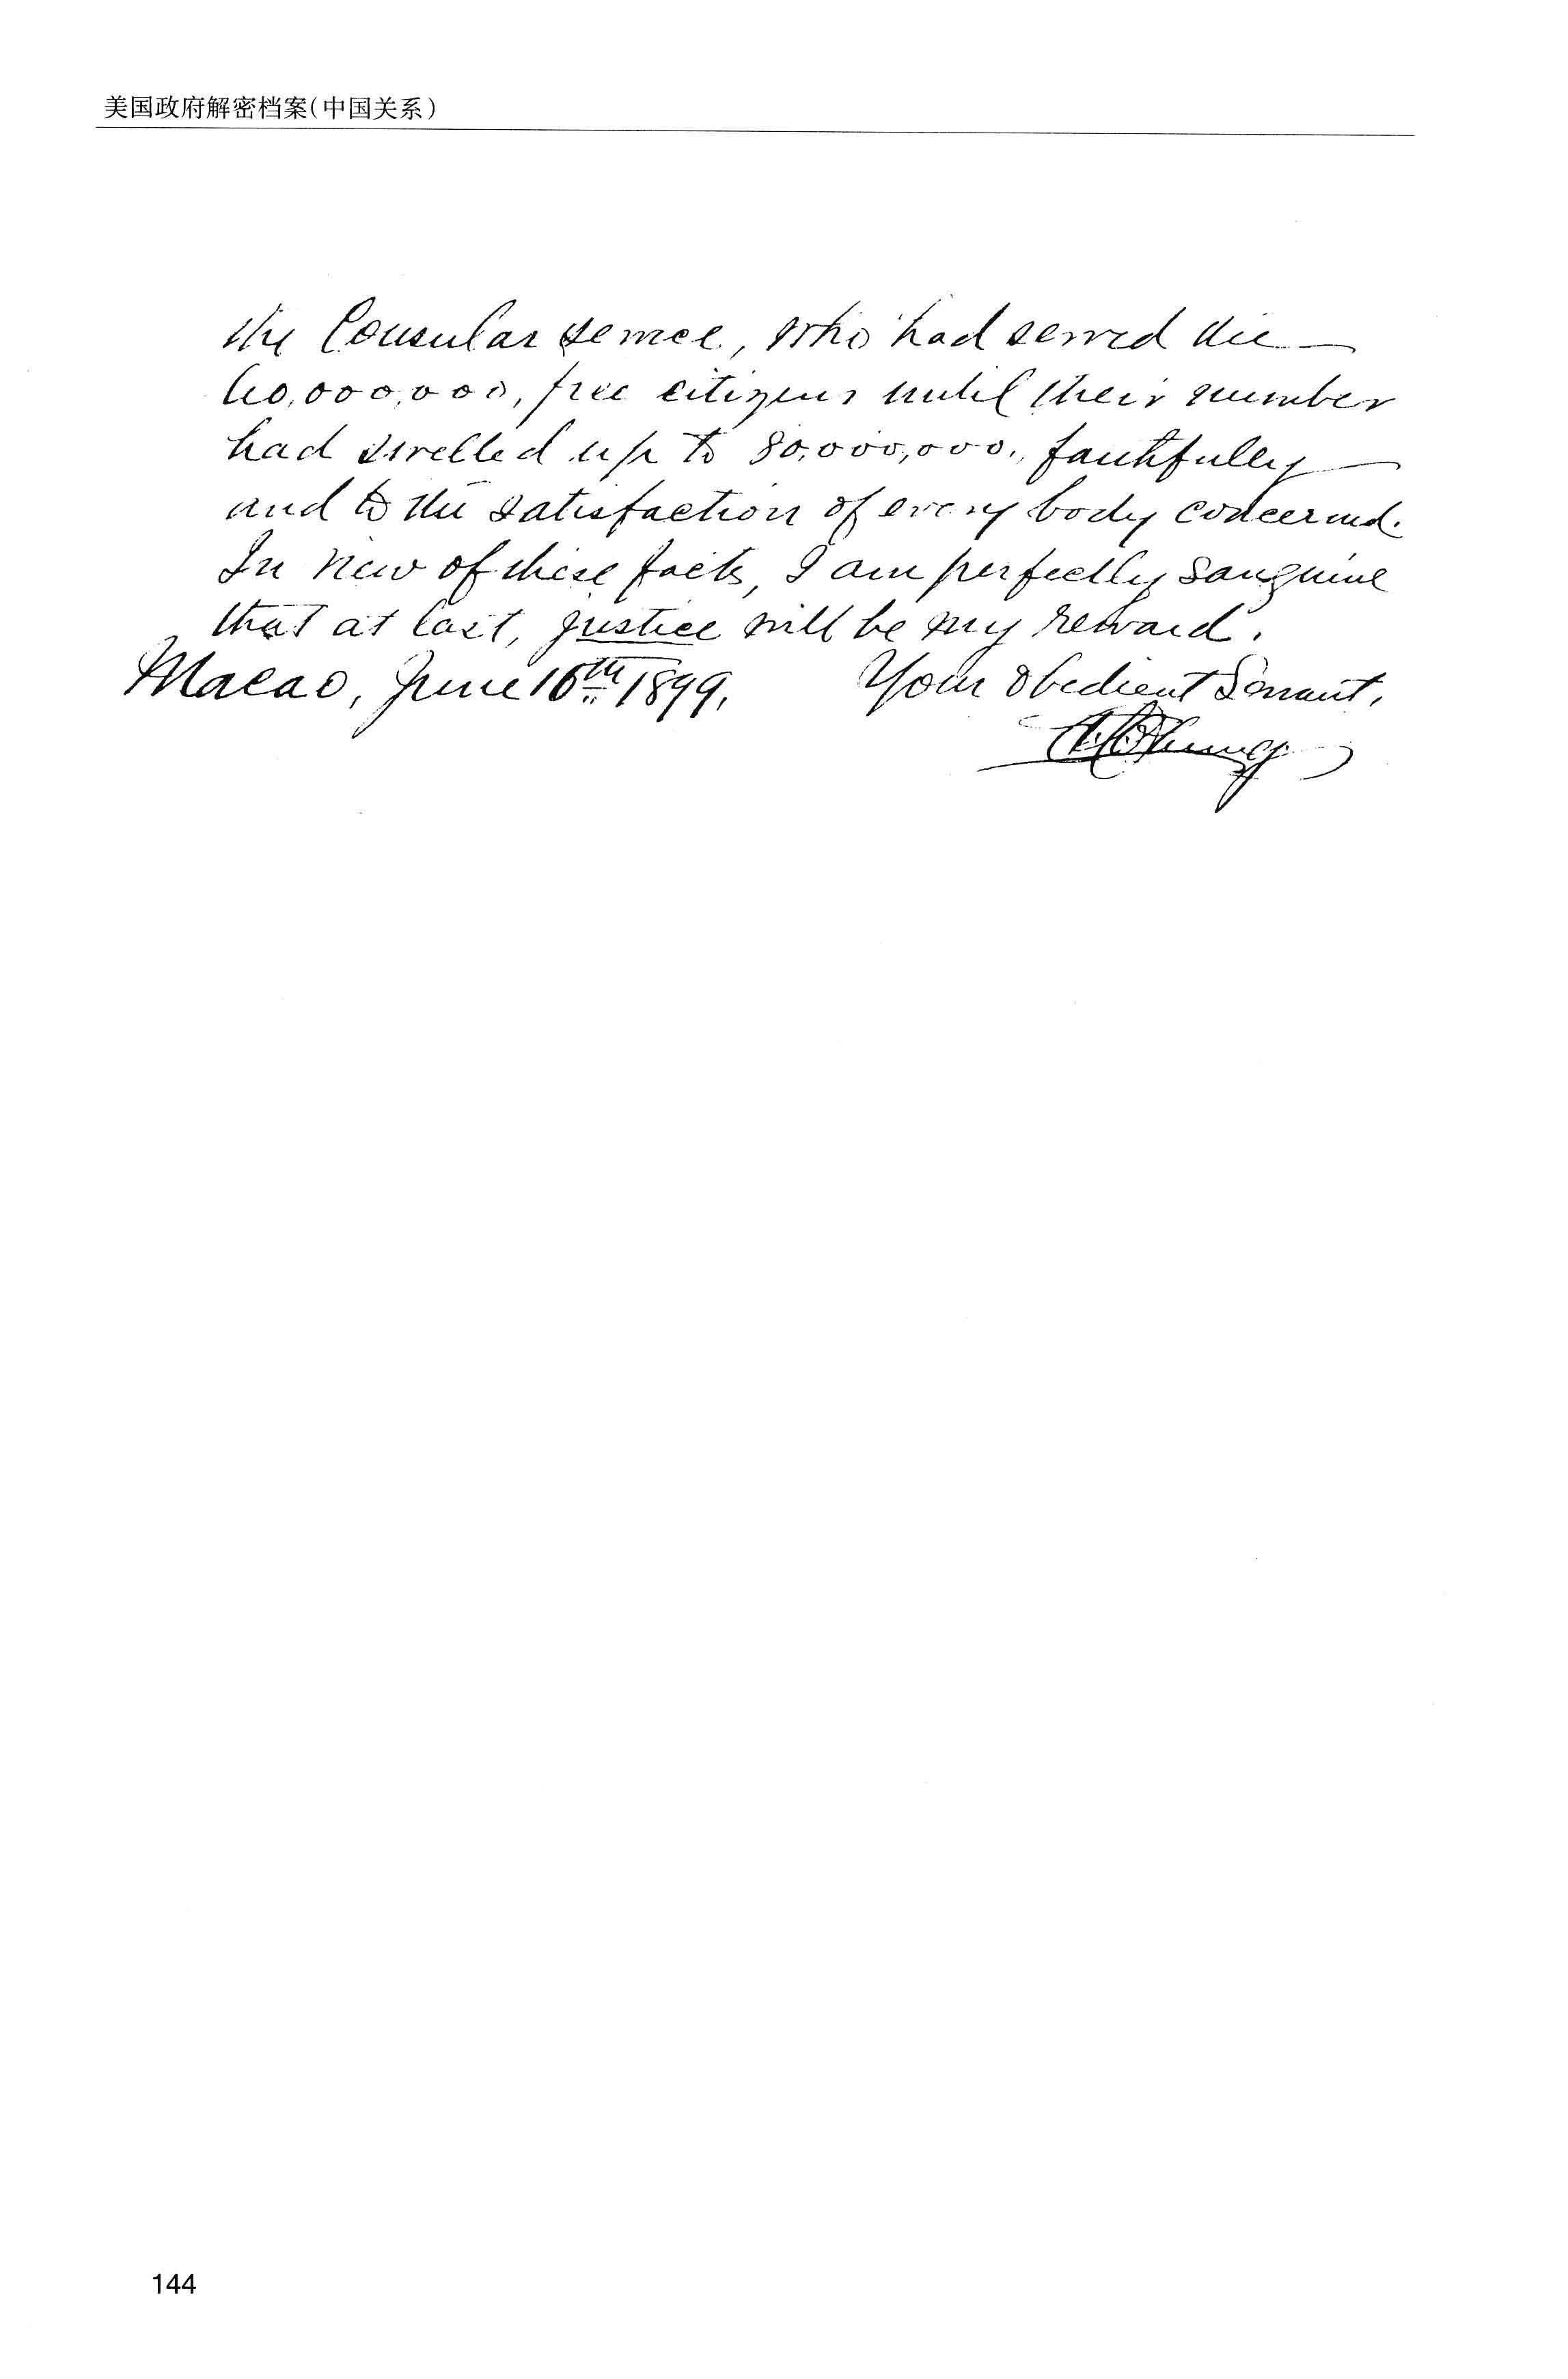 美国政府解密档案(中国关系)
the Consular service, who had served the —
60,000,000, free citizens until their number
had swelled up to 80,000,000., faithfully —
and to the satisfaction of every body concerned.
In view of these facts, I am perfectly sanguine
that at last, justice will be my reward.
Macao, June 16th 1899. Your obedient Servant,
144